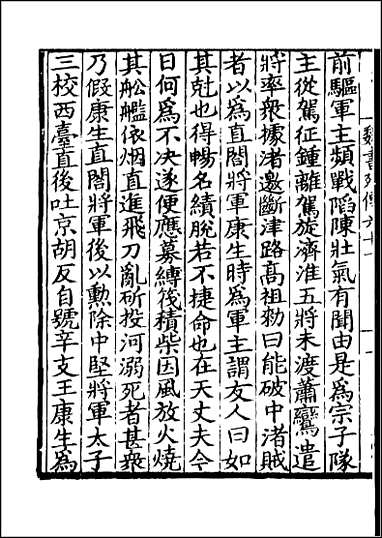 魏書列傳六十一
前驅軍主頻戰陷陳壯氣有聞由是爲宗子隊
主從駕征鍾離駕旋濟淮五將未渡蕭鸞遣
將率衆據渚邀斷津路高祖勑曰能破中渚賊
者以爲直閤將軍康生時爲軍主謂友人曰如
其尅也得暢名績脫若不捷命也在天丈夫今
日何爲不決遂便應募縛筏積柴因風放火燒
其舩艦依烟直進飛刀亂斫投河溺死者甚衆
乃假康生直閤將軍後以勳除中堅將軍太子
三校西臺直後吐京胡反自號辛支王康生爲